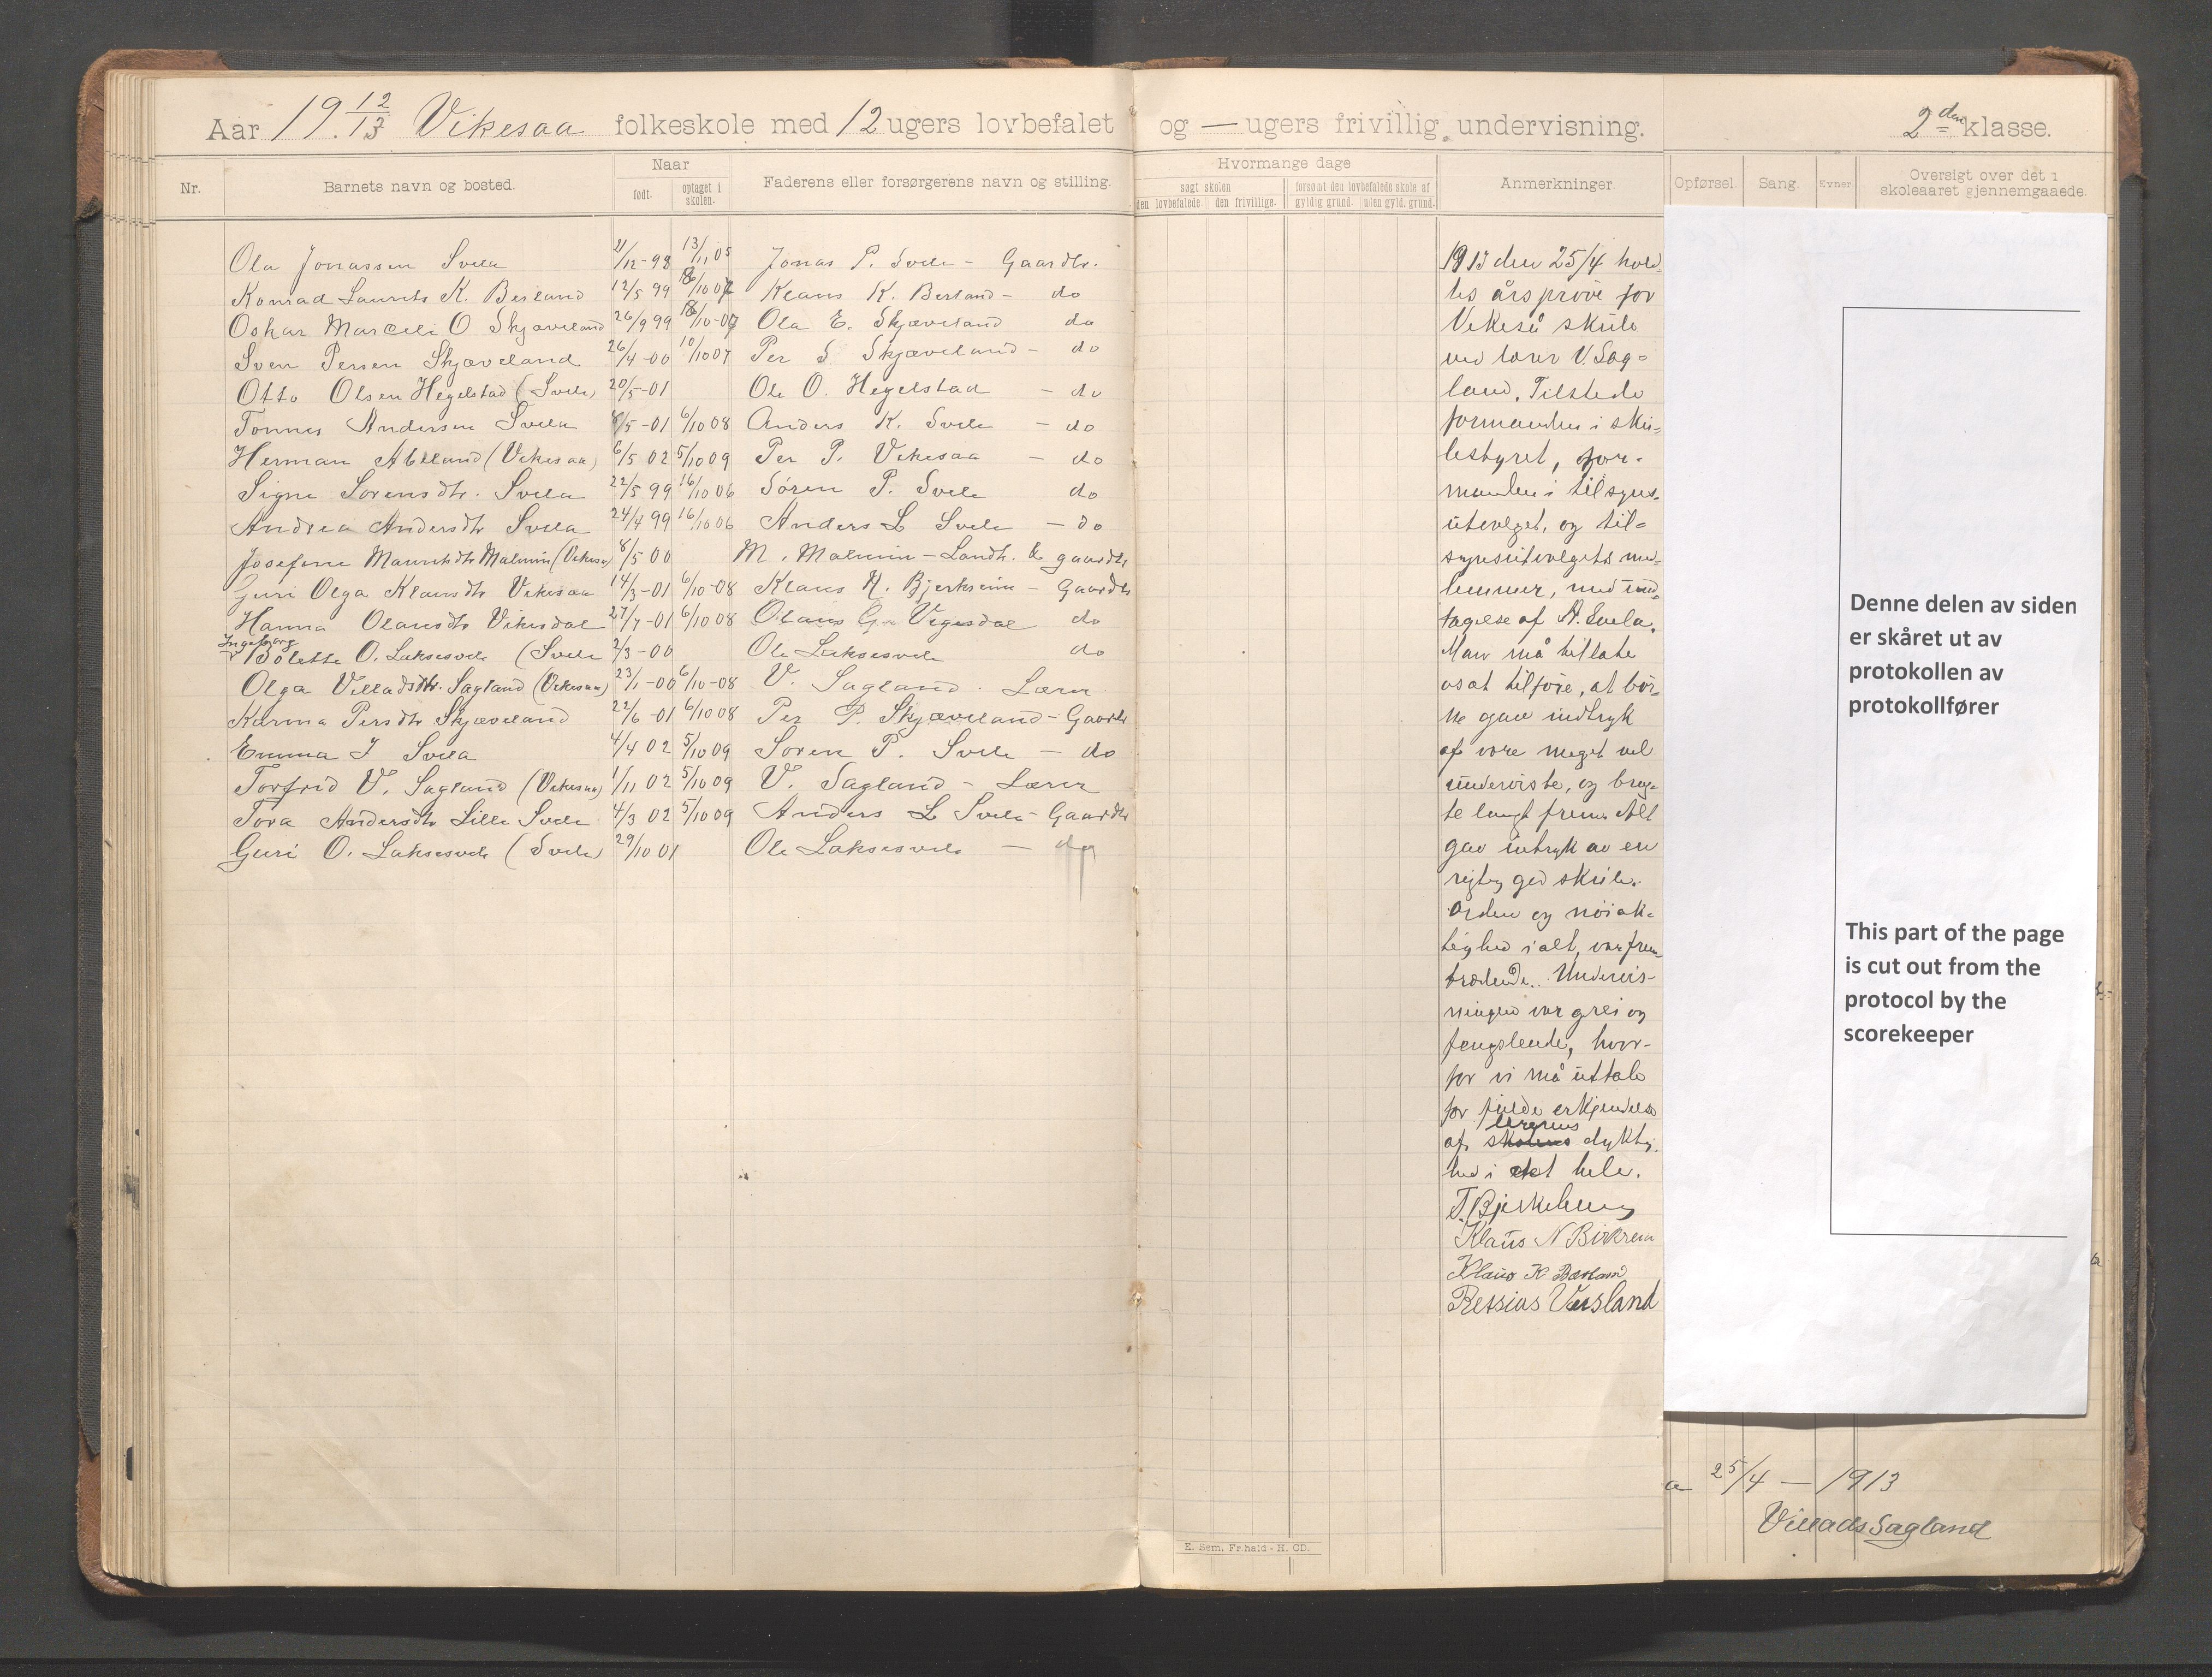 Aar 19 12/13 Vikesaa folkeskole med 12 ugers lovbefalet og — ugers frivillig undervisning. 2den klasse.
Nr. Barnets navn og bosted. Naar født. optaget i skolen. Faderens eller forsørgerens navn og stilling.
Hvormange dage
søgt skolen forsømt den lovbefalede skole af
den lovbefalede. den frivillige. gyldig grund. uden gyld. grund.
Anmerkninger.
Opførsel. Sang. Evner. Oversigt over det i skoleaaret gjennemgaaede.
Ola Jonassen Svela 21/12-98 13/11 05 Jonas P. Svela - Gaardbr.
Konrad Laurits K. Berland 12/5 99 16/10 07 Klaus K. Berland - do
Oskar Marceli O. Skjæveland 26/9 99 18/10-07 Ola E. Skjæveland do
Sven Persen Skjæveland 26/4-00 10/10 07 Per S Skjæveland - do
Otto Olsen Hegelstad (Svela) 20/5-01 Ole O. Hegelstad - do
Tønnes Andersen Svela 8/5-01 6/10 08 Anders K. Svela - do
Herman Abeland (Vikesaa) 6/5 02 5/10 09 Per P. Vikesaa - do
Signe Sørensdtr. Svela 22/5 99 16/10 06 Sören P. Svela do
Andrea Andersdtr Svela 24/4 99 16/10 06 Anders L Svela - do
Josefine Mauritsdtr Malmin (Vikesaa) 8/5 00 M. Malmin - Landh. & gaardbr
Guri Olga Klausdtr Vikesaa 14/3-01 6/10-08 Klaus N. Bjerkreim - Gaardbr
Hanna Olausdtr Vikesdal 27/7-01 6/10 08 Olaus G. Vigesdal do
Ingeborg
Bolette O. Laksesvela (Svela 2/3-00 Ole Laksesvela do
Olga Villadsdtr. Sagland (Vikesaa) 23/1-00 6/10-08 V. Sagland. Lærer
Karina Persdtr Skjæveland 22/6-01 6/10 08 Per P. Skjæveland - Gaardbr
Emma S Svela 4/4 02 5/10 09 Søren P. Svela - do
Torfrid V. Sagland (Vikesaa) 1/11 02 5/10 09 V. Sagland - Lærer
Tora Andersdtr Lille Svela 4/3 02 5/10 09 Anders L Svela - Gaardbr
Guri O. Laksesvela (Svela) 29/10 01 Ole Laksesvela - do
1913 den 25/4 hold-
tes årsprøve for
Vikeså skule
ved lærer V. Sag-
land. Tilstede
formanden i sku-
lestyret, for-
manden i tilsyns-
utvalget, og til-
synsutvalgets med-
lemmer, med und-
tagelse af A. Svela.
Man må tillate
os at tilføie, at bør-
ne gav indtryk
af være meget vel
underviste, og brag-
te langt frem. Alt
gav intryk av en
rigtig god skule.
Orden og nøiak-
tighed i alt, var frem-
trædende. Undervis-
ningen var grei og
fengslende, hvor-
for vi må uttale
for fulde erkjendelse
lærerens
af skolens dyktig-
hed i det hele.
T. Bjerkeheim
Klaus N Birkrem
Klaus K Berland
Retsias Versland
Denne delen av siden
er skåret ut av
protokollen av
protokollfører
This part of the page
is cut out from the
protocol by the
scorekeeper
25/4 — 1913
Villads Sagland
E. Sem. Fr.hald - H. CD.